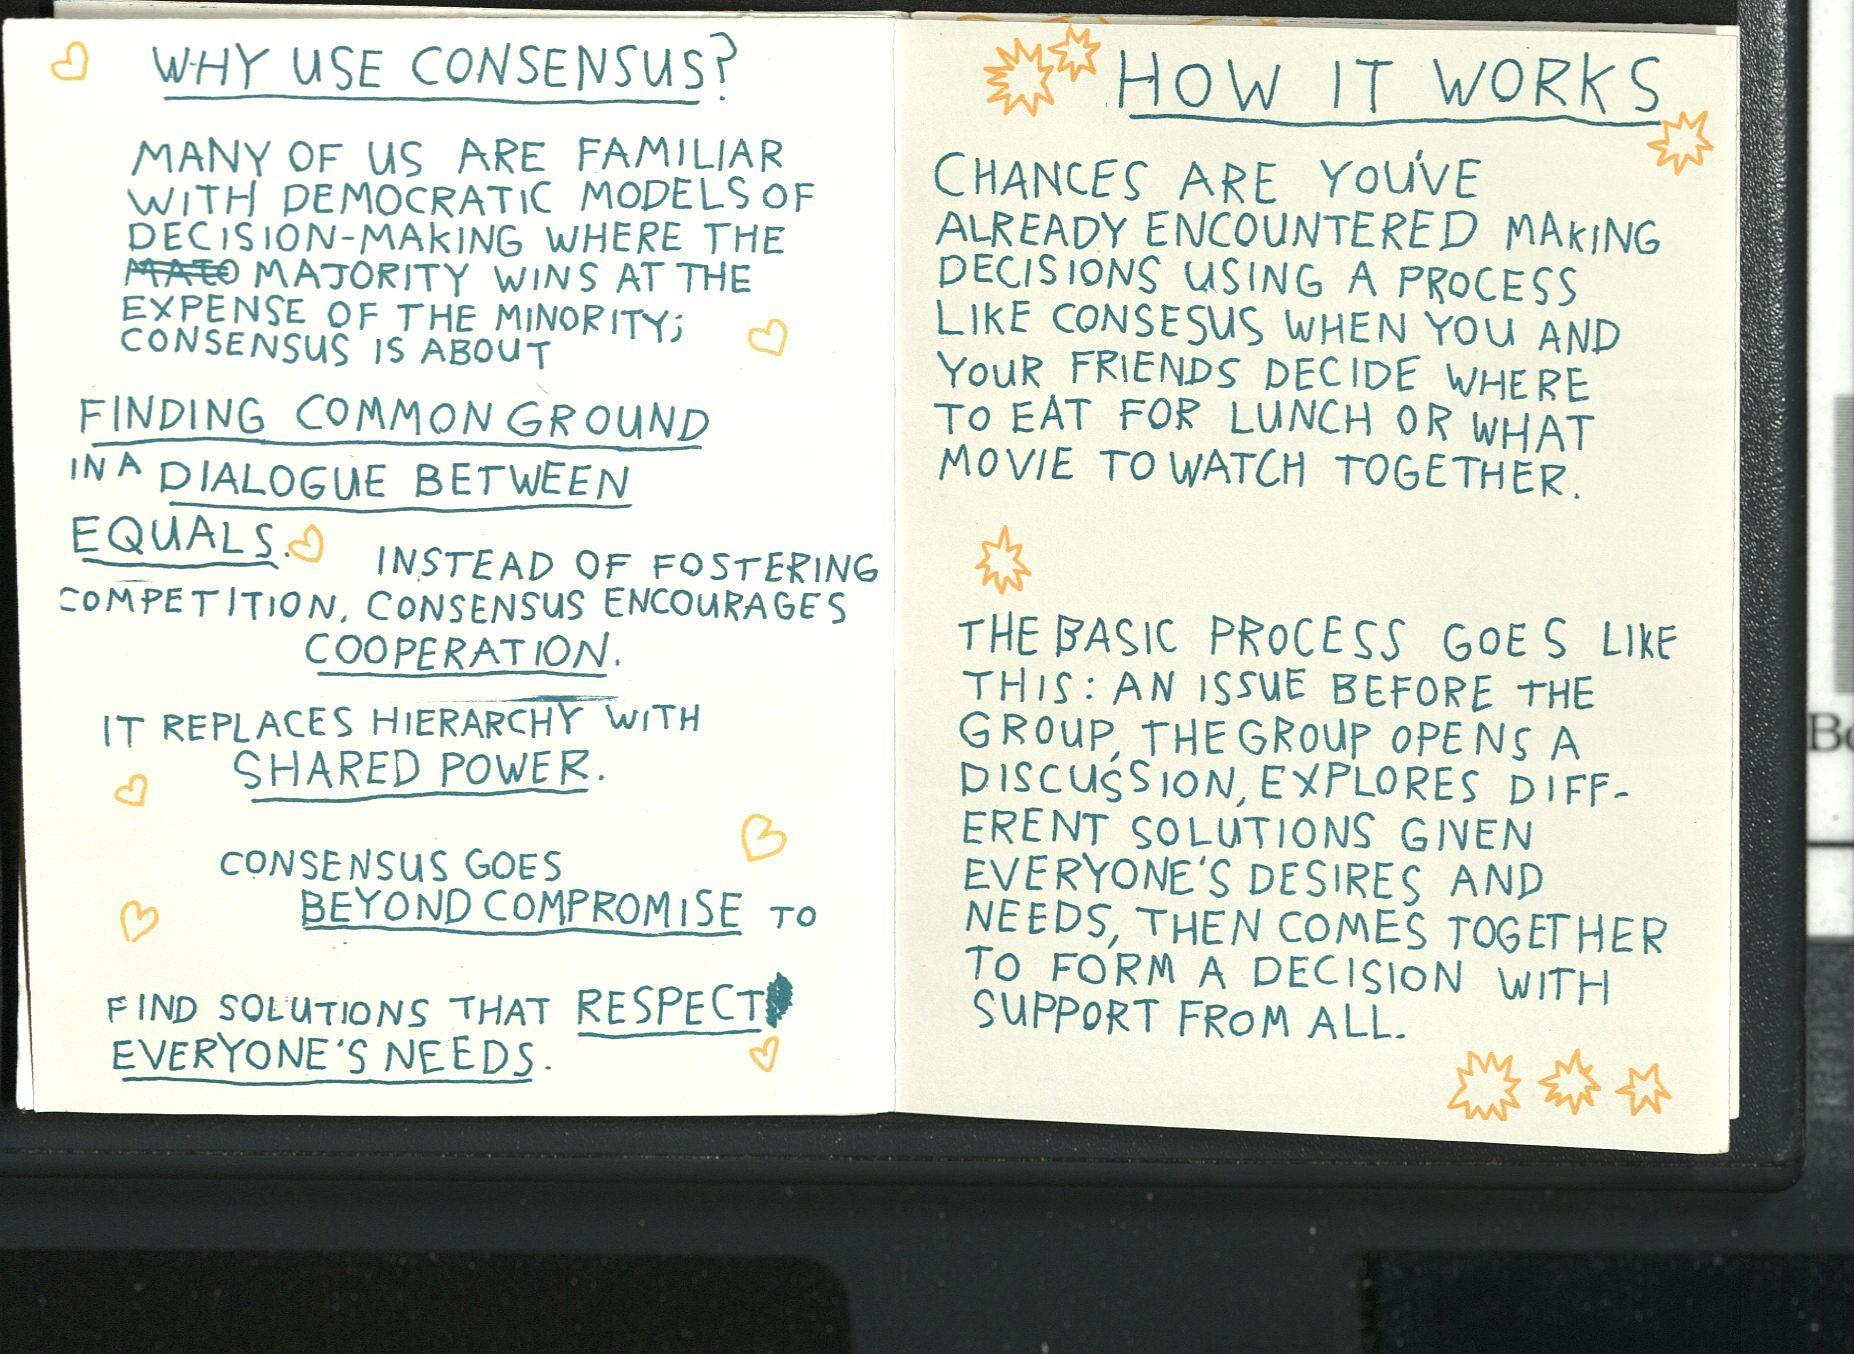 WHY USE CONSENSUS?
MANY OF US ARE FAMILIAR
WITH DEMOCRATIC MODELS OF
DECISION-MAKING WHERE THE
MAJORITY WINS AT THE
EXPENSE OF THE MINORITY;
CONSENSUS IS ABOUT
FINDING COMMON GROUND
IN A DIALOGUE BETWEEN
EQUALS.
INSTEAD OF FOSTERING
COMPETITION, CONSENSUS ENCOURAGES
COOPERATION.
IT REPLACES HIERARCHY WITH
SHARED POWER.
CONSENSUS GOES
BEYOND COMPROMISE TO
FIND SOLUTIONS THAT RESPECT
EVERYONE'S NEEDS.
HOW IT WORKS
CHANCES ARE YOU'VE
ALREADY ENCOUNTERED MAKING
DECISIONS USING A PROCESS
LIKE CONSESUS WHEN YOU AND
YOUR FRIENDS DECIDE WHERE
TO EAT FOR LUNCH OR WHAT
MOVIE TO WATCH TOGETHER.
THE BASIC PROCESS GOES LIKE
THIS: AN ISSUE BEFORE THE
GROUP, THE GROUP OPENS A
DISCUSSION, EXPLORES DIFF-
ERENT SOLUTIONS GIVEN
EVERYONE'S DESIRES AND
NEEDS, THEN COMES TOGETHER
TO FORM A DECISION WITH
SUPPORT FROM ALL.